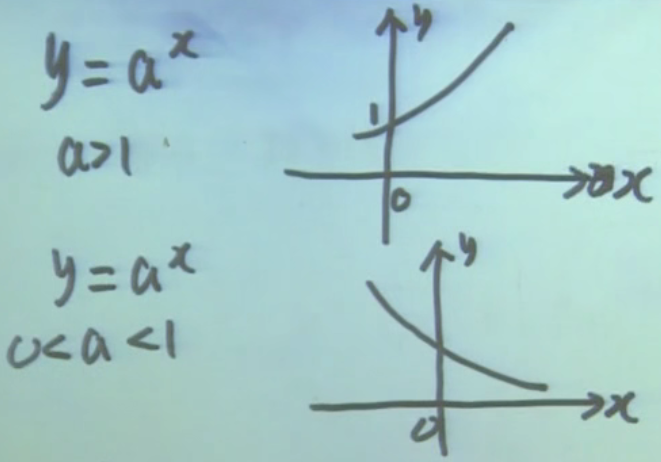 y = a^x
a>1
y
1
0
x
y = a^x
0<a<1
y
0
x